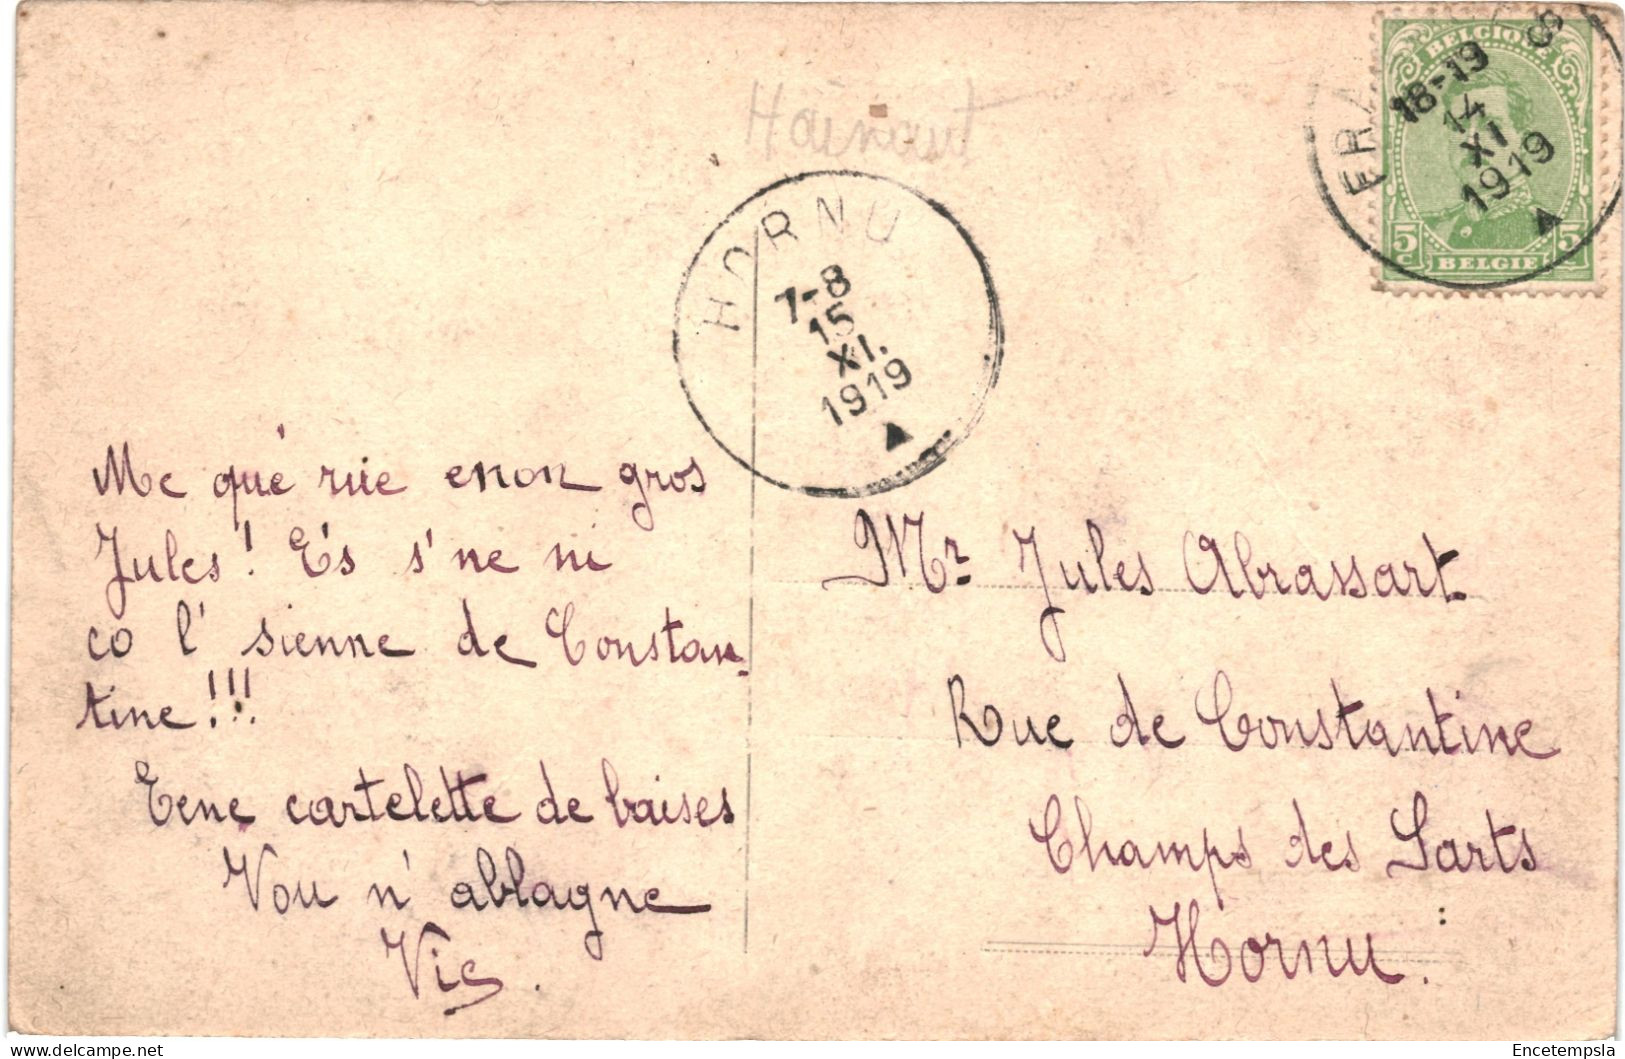 Hainaut
BELGIQUE
18-19
14
XI
1919
5c
5c
BELGIE
HORNU
7-8
15
XI.
1919
Me qué rûe enon gros
Jules! E's s'ne ni
co l' sienne de Constan-
tine!!!
Eene cartelette de baises
Vou n' ablagne
Vic.
Mr. Jules Abrassart
Rue de Constantine
Champs des Sarts
Hornu.
Encetempsla